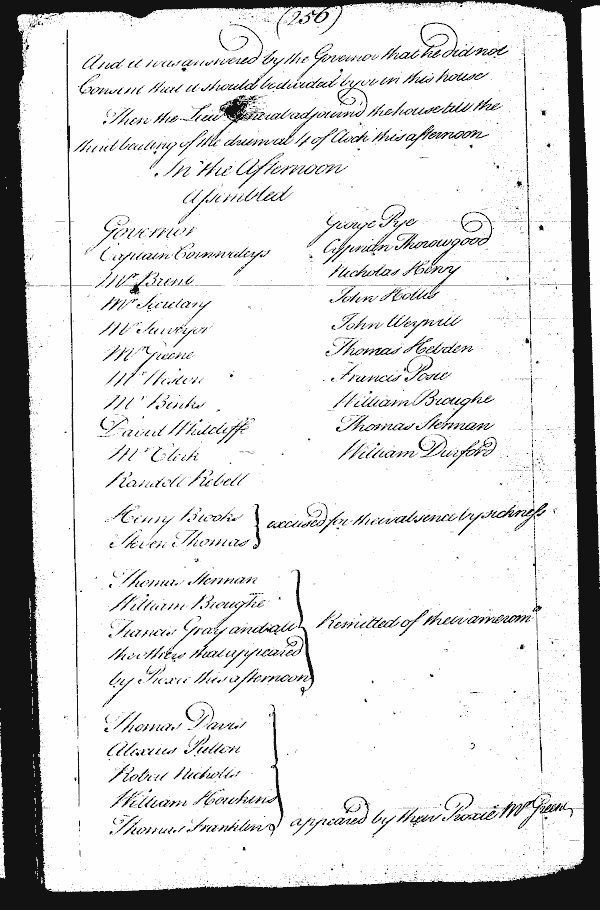 (256)
And it was answered by the Governor that he did not
Consent that it should be divided by or in this house
Then the Lieu General adjourn'd the house till the
third beating of the drum at 4 of Clock this afternoon
In the Afternoon
Assembled
Governor
Captain Cornwaleys
Mr Brent
Mr Secretary
Mr Surveyor
Mr Greene
Mr Weston
Mr Binks
David Whitcliffe
Mr Clerk
Randoll Rebell
George Pye
Cyprian Thorowgood
Nicholas Henry
John Hollis
John Weymill
Thomas Hebden
Francis Posie
William Broughe
Thomas Sterman
William Durford
Henry Brooks
Steven Thomas
excused for their absence by sickness
Thomas Sterman
William Broughe
Francis Gray and all
the others that appeared
by Proxie this afternoon
Remitted of their amerciamt
Thomas Davis
Alexius Pulton
Robert Nicholls
William Hawkins
Thomas Franklin
appeared by their Proxie Mr Greene